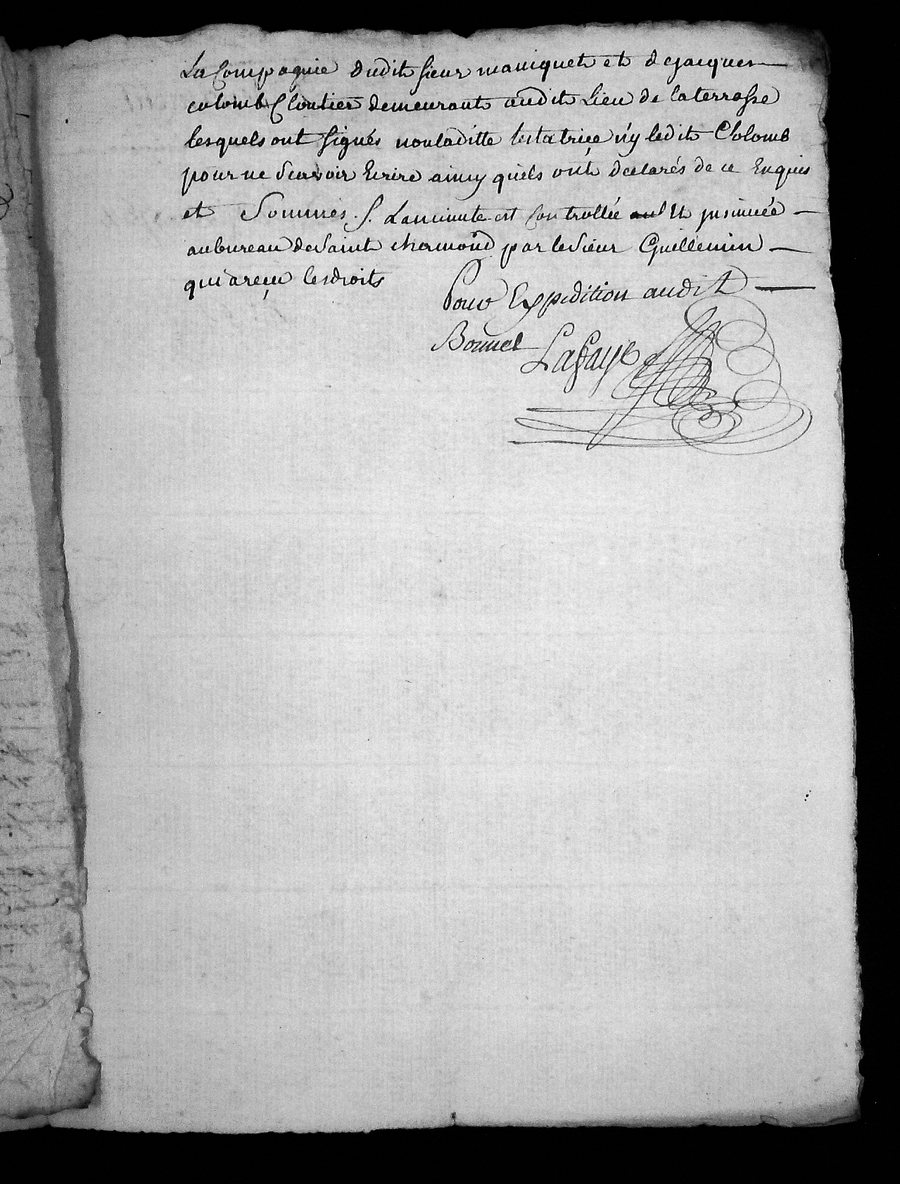 La Compagnie dudit sieur maniquet et de jacques
colomb Cloutier demeurant audit Lieu de la terrasse
lesquels ont signés non laditte testatrice n'y ledit Cholomb
pour ne scavoir Ecrire ainsy quils ont déclarés de ce Enquis
et Sommés. La minute est controllée au Et insinuée
au bureau de Saint chamond par le sieur Guillemin
qui a reçu les droits
Pour Expedition audit
Bonnet Lafaye